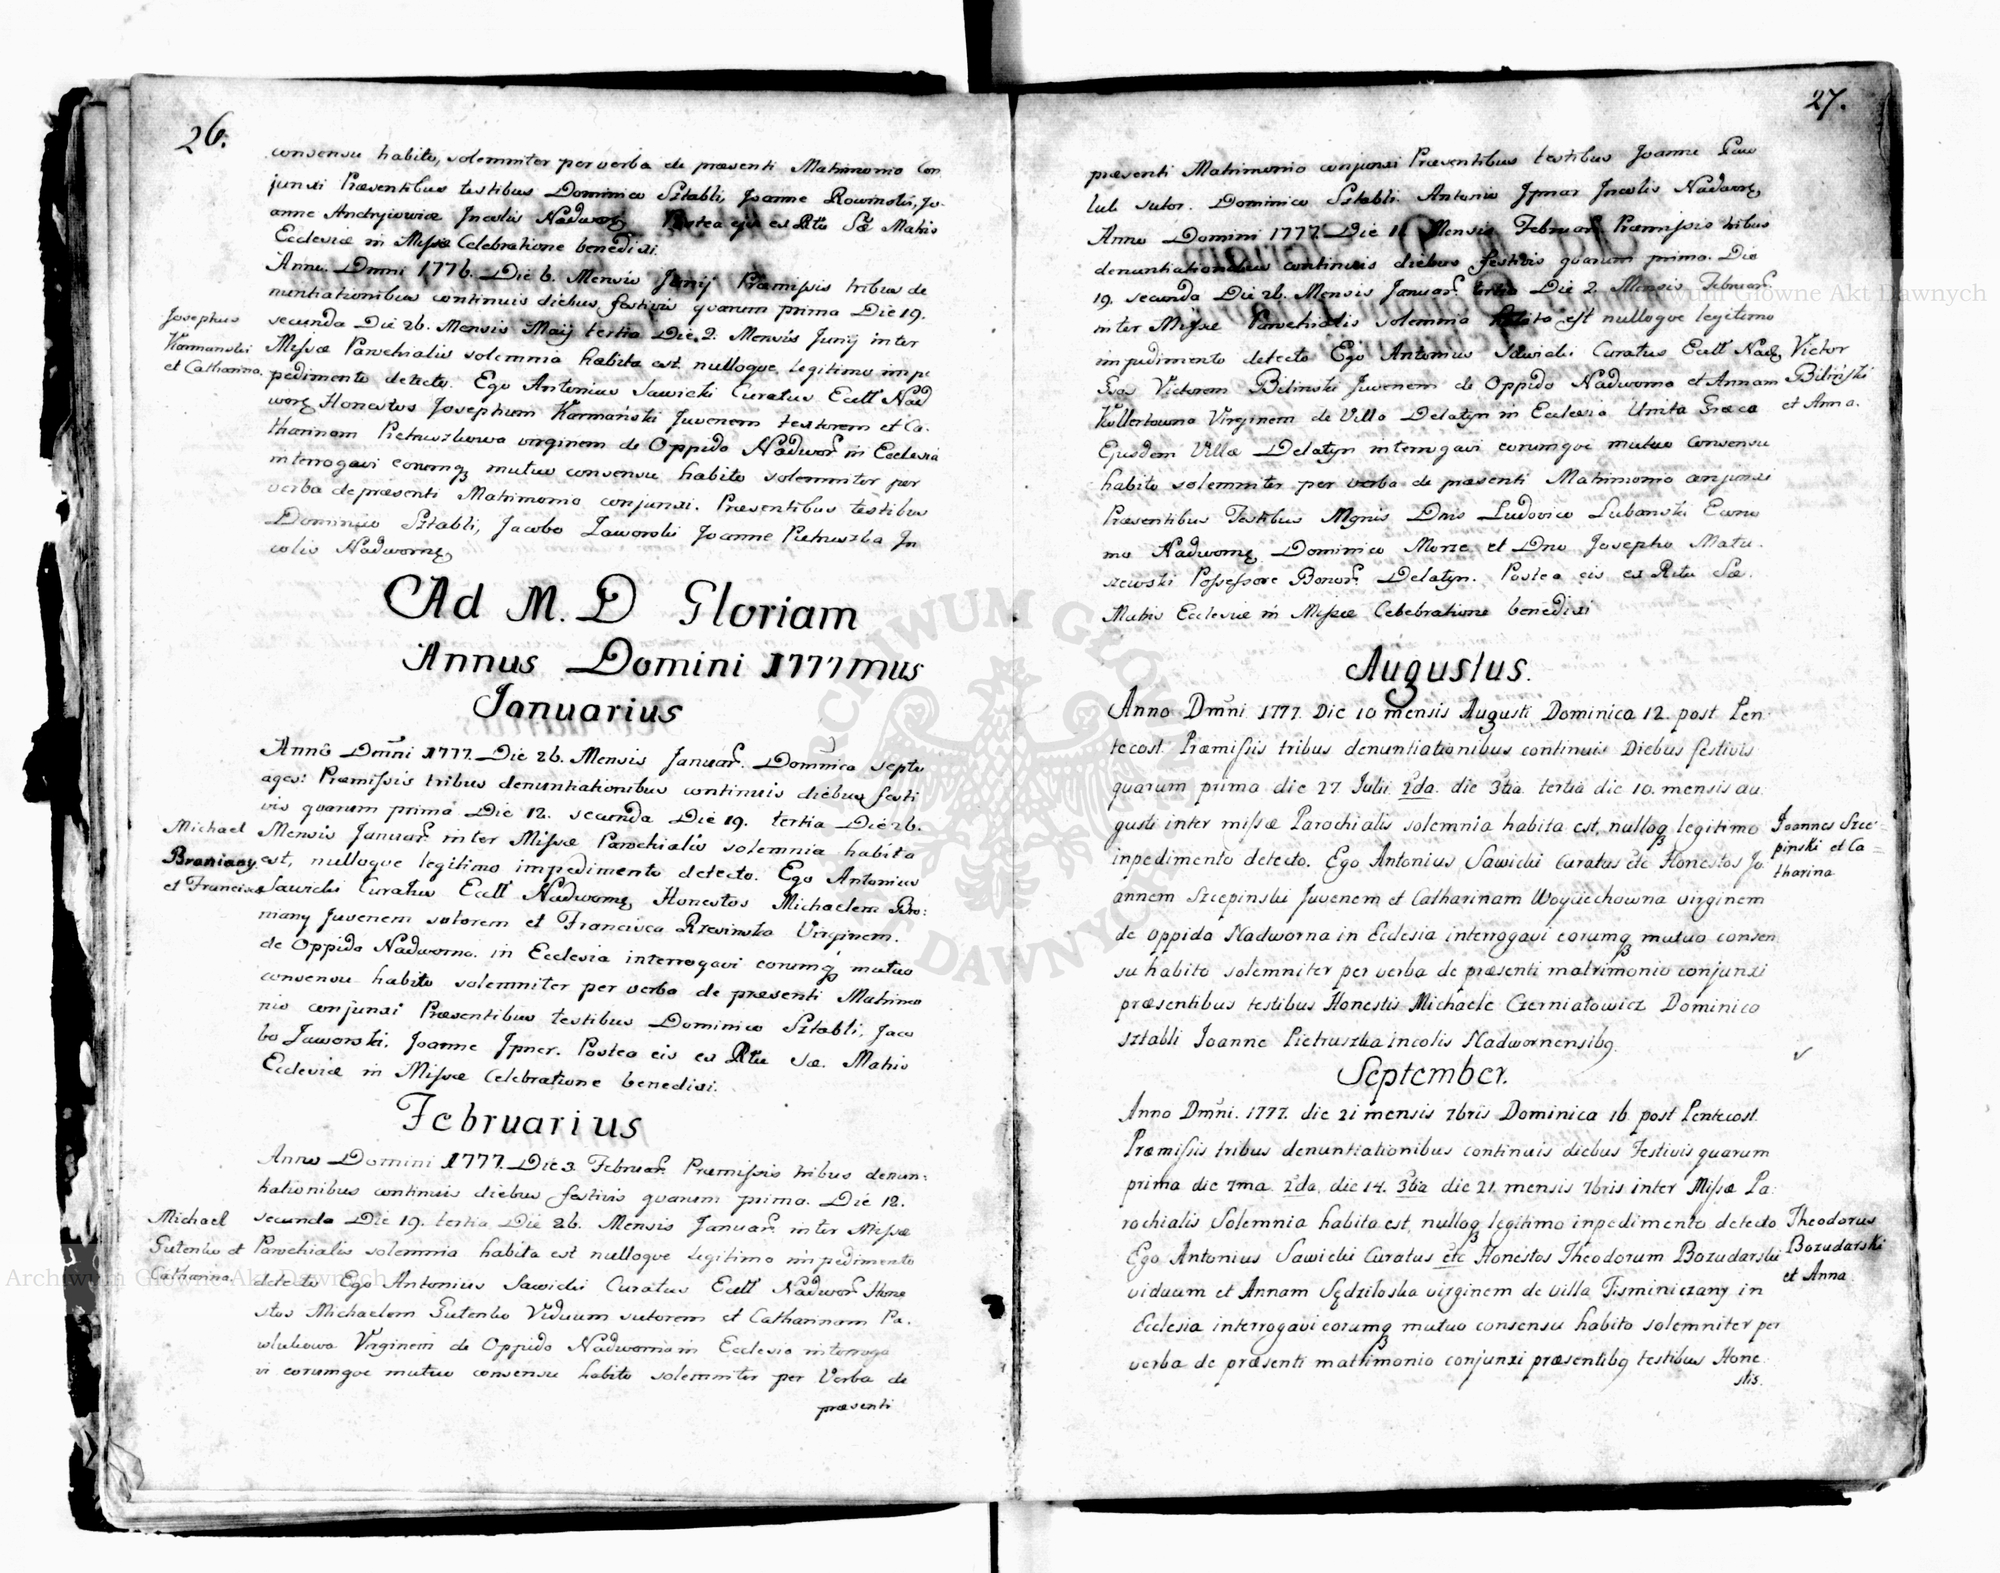 26.
consensu habito, solemniter per verba de præsenti Matrimonio Con
junxi Præsentibus testibus Dominico Sztabli, Joanne Rowinski, Jo-
anne Andryiowicz Incolis Nadwor. Postea eis ex Ritu Sæ Matris
Ecclesiæ in Missæ Celebratione benedixi.
Anno. Dmni 1776. Die 6. Mensis Junij Præmissis tribus de
nuntiationibus continuis diebus festivis quarum prima Die 19.
secunda Die 26. Mensis Maij tertia Die 2. Mensis Junij inter
Josephus
Karmanski
et Catharina.
Missæ Parochialis solemnia habita est nulloque legitimo impe
pedimento detecto. Ego Antonius Sawicki Curatus Eccll Nad
worę Honestos Josephum Karmański Juvenem textorem et Ca-
tharinam Pietruszkowa virginem de Oppido Nadwor in Ecclesia
interrogavi eorumq mutuo consensu habito solemniter per
verba de præsenti Matrimonio conjunxi. Præsentibus testibus
Dominico Sztabli, Jacobo Jaworski Joanne Pietruszka In
colis Nadwornę
Ad M. D Gloriam
Annus Domini 1777mus
Januarius
Anno Dmni 1777. Die 26. Mensis Januar. Domnica septu
ages: Præmissis tribus denuntiationibus continuis diebus festi
vis quarum prima Die 12. secunda Die 19. tertia Die 26.
Michael
Broniany
et Francisca
Mensis Januar. inter Missæ Parochialis solemnia habita
est, nulloque legitimo impedimento detecto. Ego Antonius
Sawicki Curatus Eccll Nadwornę Honestos Michaelem Bro:
niany Juvenem sutorem et Francisca Rzesinska Virginem.
de Oppido Nadworna. in Ecclesia interrogavi eorumq mutuo
consensu habito solemniter per verba de præsenti Matrimo
nio conjunxi Præsentibus testibus Dominico Sztabli, Jaco
bo Jaworski. Joanne Jpner. Postea eis ex Ritu Sæ. Matris
Ecclesiæ in Missæ Celebratione benedixi.
Februarius
Anno Domini 1777. Die 3. Februar. Præmissis tribus denun:
tiationibus continuis diebus festivis quarum prima. Die 12.
Michael
Gutenko et
Catharina.
secunda Die 19. tertia Die 26. Mensis Januar. inter Missæ
Parochialis solemnia habita est nulloque legitimo impedimento
detecto Ego Antonius Sawicki Curatus Eccll Nadwor Hone
stos Michaelem Gutenko Viduum sutorem et Catharinam Pa.
wlukowa Virginem de Oppido Nadworna in Ecclesia interroga
vi eorumque mutuo consensu habito solemniter per Verba de
præsenti
27.
præsenti Matrimonio conjunxi Præsentibus testibus Joanne Paw
luk sutor. Dominico Sztabli. Antonio Jpnar Incolis Nadwornę
Anno Domini 1777. Die 11. Mensis Februar. Præmissis tribus
denuntiationibus continuis diebus festivis quarum prima. Die
19. secunda Die 26. Mensis Januar. tertia Die 2. Mensis Februar.
inter Missæ Parochialis solemnia habita est nulloque legitimo
impedimento detecto Ego Antonius Sawicki Curatus Eccll Nadę
Victor
Biliński
et Anna.
Victorem Bilinski Juvenem de Oppido Nadworna et Annam
Kollertowna Virginem de Villa Delatyn in Ecclesia Unita Græca
Ejusdem Villæ Delatyn interrogavi eorumque mutuo Consensu
habito solemniter per verba de præsenti Matrimonio conjunxi
Præsentibus Testibus Mgnis Dnis Ludovico Lubanski Econo
mo Nadwornę Dominico Morze et Dno Josepho Matu.
szewski Possessore Bonor. Delatyn. Postea eis ex Ritu Sæ.
Matris Ecclesiæ in Missæ Cebebratione benedixi
Augustus.
Anno Dmni. 1777. Die 10 mensis Augusti Dominica 12. post Pen-
tecost. Præmissis tribus denuntiationibus continuis Diebus festivis
quarum prima die 27. Julii. 2da. die 3tia. tertia die 10. mensis au.
gusti inter missæ Parochialis solemnia habita est, nulloq legitimo
Joannes Szce-
pinski et Ca-
tharina
inpedimento detecto. Ego Antonius Sawicki Curatus etc Honestos Jo
annem Szcepinski Juvenem et Catharinam Woyciechowna virginem
de oppido Nadworna in Ecclesia interrogavi eorumq mutuo consen
su habito solemniter per verba de præsenti matrimonio conjunxi
præsentibus testibus Honestis Michaele Czerniatowicz Dominico
Sztabli Joanne Pietruszka incolis Nadwornensibq.
September.
Anno Dmni. 1777. die 21 mensis 7bris Dominica 16 post Pentecost.
Præmissis tribus denuntiationibus continuis diebus Festivis quarum
prima die 7ma. 2da. die 14. 3tia die 21. mensis 7bris inter Missæ Pa.
rochialis Solemnia habita est, nulloq legitimo inpedimento detecto
Theodorus
Bozudarski
et Anna
Ego Antonius Sawicki Curatus etc Honestos Theodorum Bozudarski
viduum et Annam Sędziłoska virginem de villa Tisminiczany in
Ecclesia interrogavi eorumq mutuo consensu habito solemniter per
verba de præsenti matrimonio conjunxi præsentibq testibus Hone
stis.
Archiwum Główne Akt Dawnych